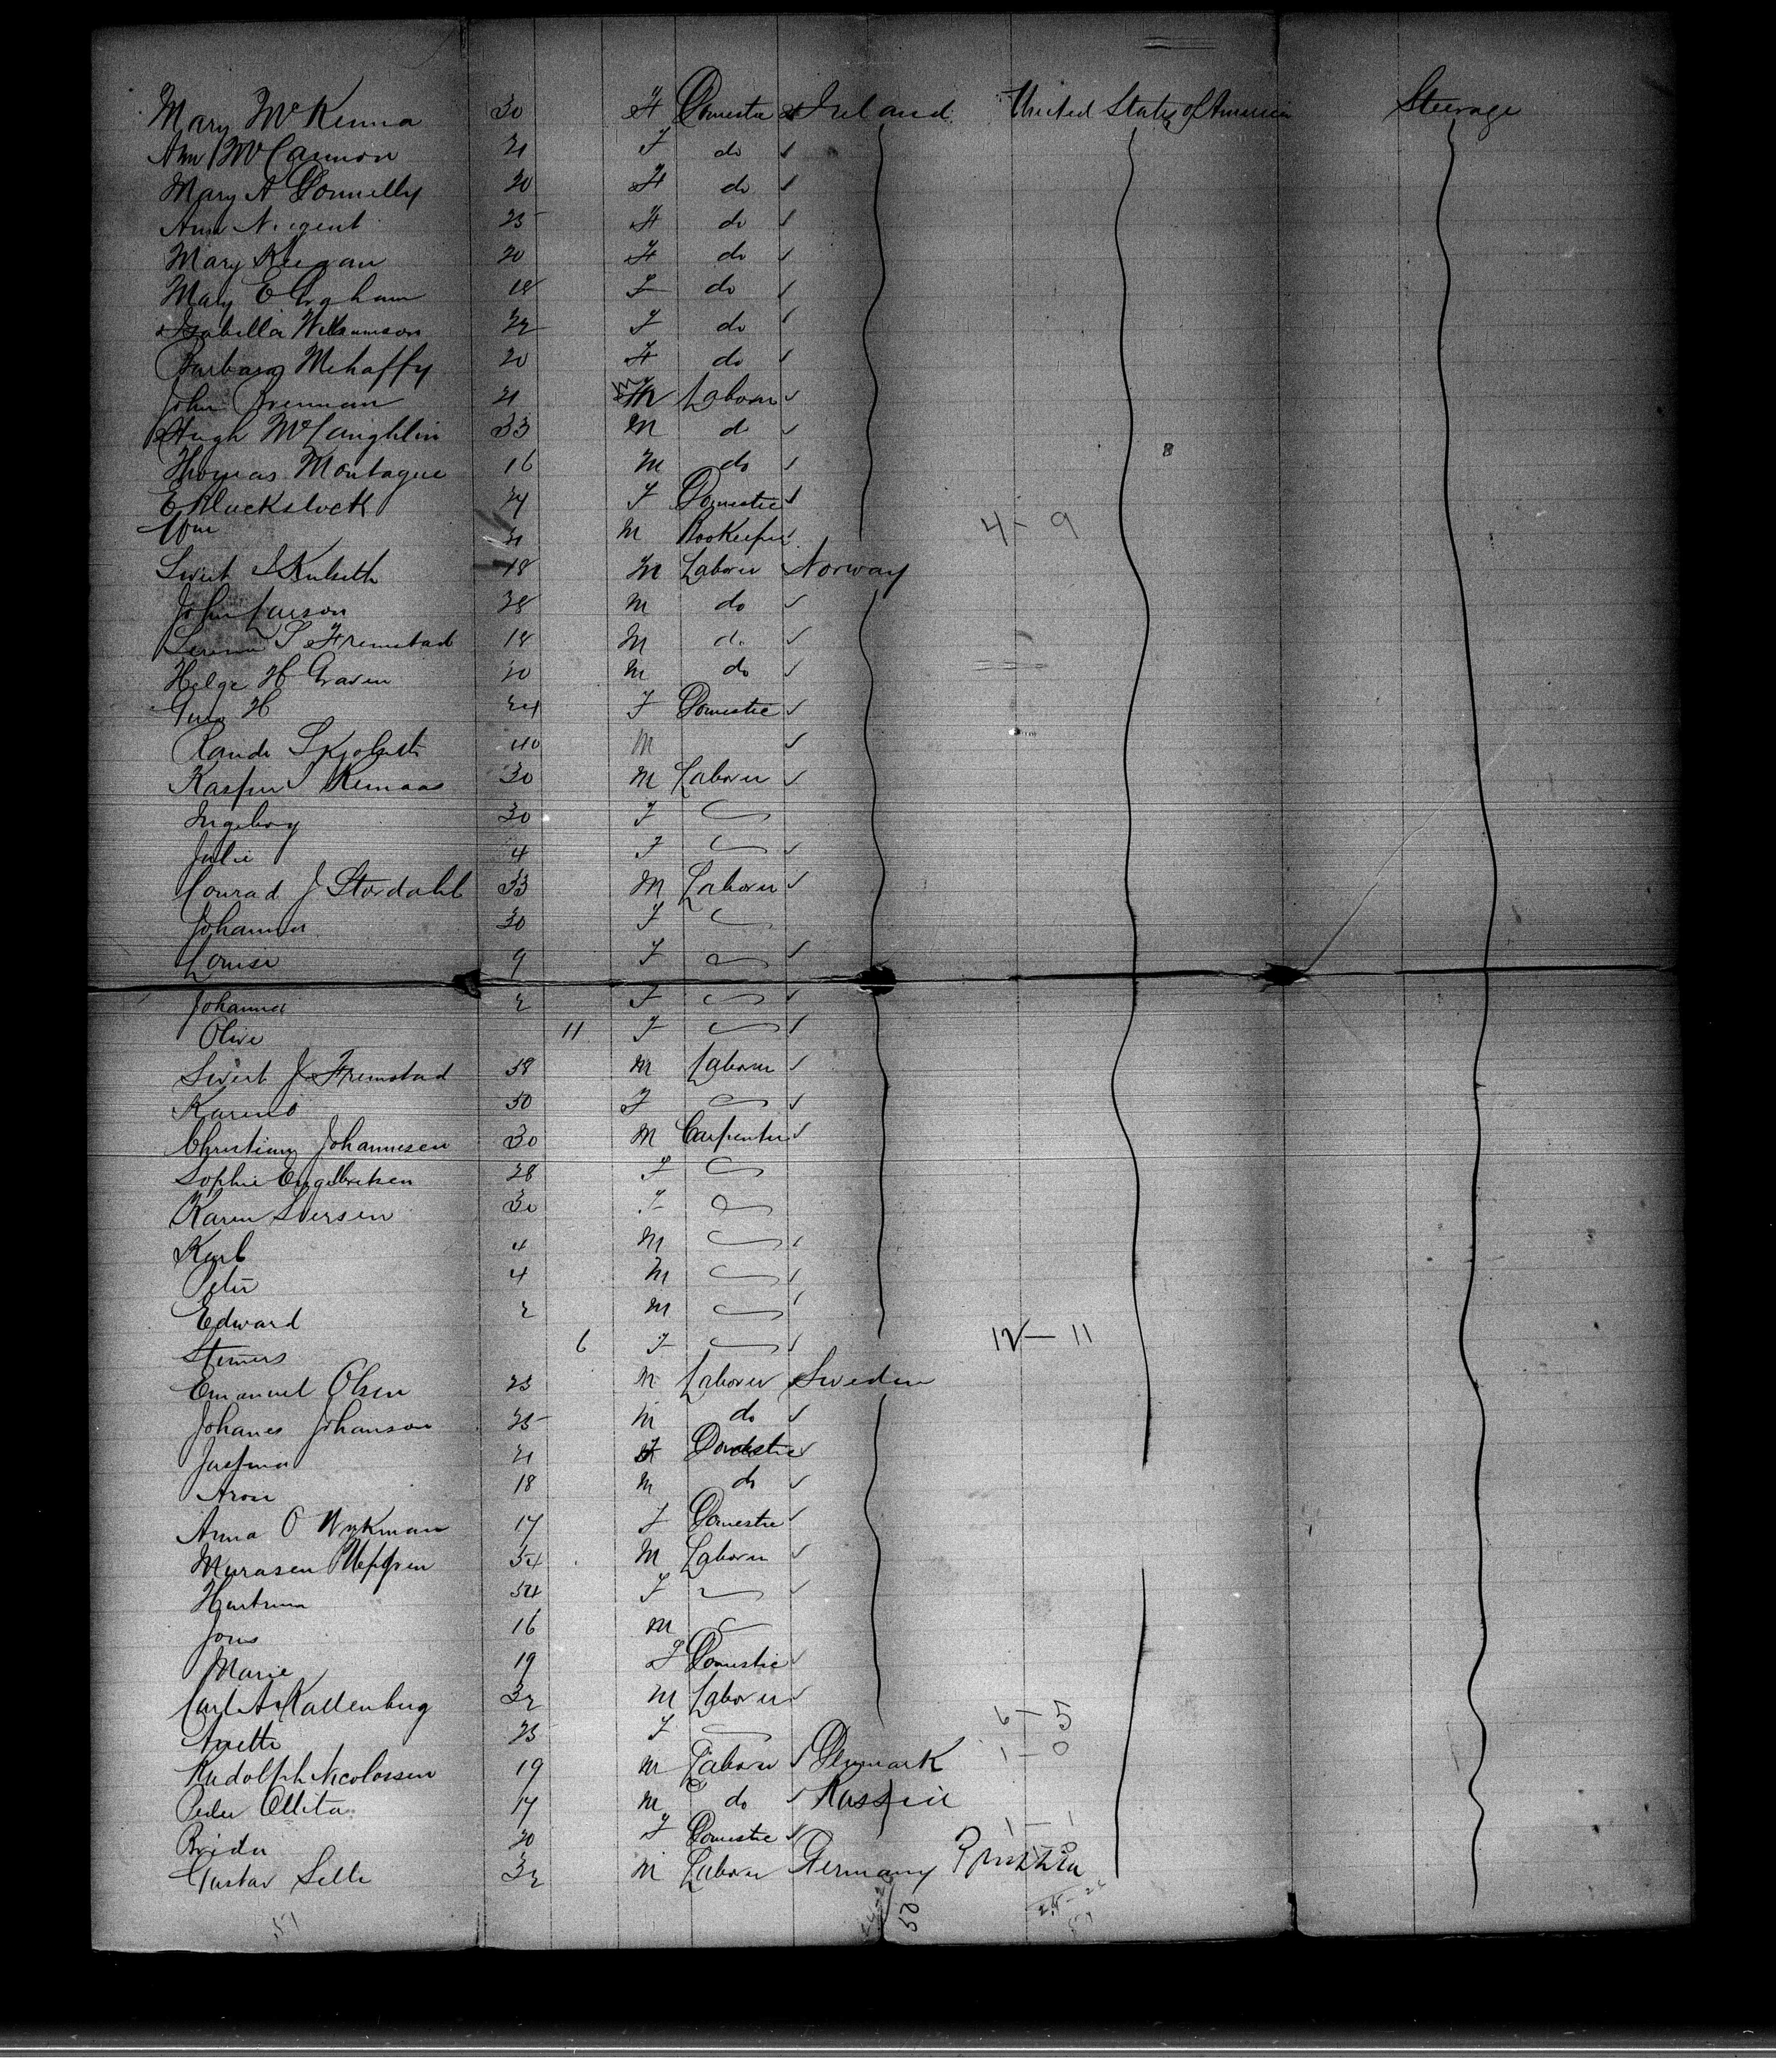 Mary McKenna 30 F Domestic Ireland United States of America Steerage
Ann McCannon 21 F do
Mary A Donnelly 20 F do
Ann Nugent 25 F do
Mary Keegan 20 F do
Mary E 18 F do
Isabella Williamson 22 F do
Barbara Mehaffy 20 F do
John Brennan 21 M Laborer
Hugh McLaughlin 33 M do
Thomas Montague 16 M do
E 24 F Domestic
Wm 21 M Bookeeper 4 - 9
Sivert 18 M Laborer Norway
John Larson 28 M do
S Fremstad 18 M do
Helge H Graven 20 M do
H 24 F Domestic
40 M
30 M Laborer
Ingeborg 30 F
Julie 4 F
Conrad J Stordahl 33 M Laborer
Johanna 30 F
Louise 9 F
Johanna 2 F
Olive 11 F
Sivert J Fremstad 58 M Laborer
50 F
Johannesen 30 M Carpenter
Sophie Engelbretsen 28 F
Karen Iversen 30 F
Karl 4 M
Peter 4 M
Edward 2 M
6 F 12 - 11
Emanuel Olsen 23 M Laborer Sweden
Johanes Johanson 25 M do
21 F Domestic
Aron 18 M do
Anna O Wykman 17 F Domestic
54 M Laborer
54 F
Jons 16 M
Marie 19 F Domestic
Carl A Kallenberg 32 M Laborer 6 - 5
Anette 25 F 1 - 0
Rudolph Nicolassen 19 M Laborer Denmark
17 M do Russia
20 F Domestic 1 - 1
Gustav Selle 32 M Laborer Germany Prussia
51 52